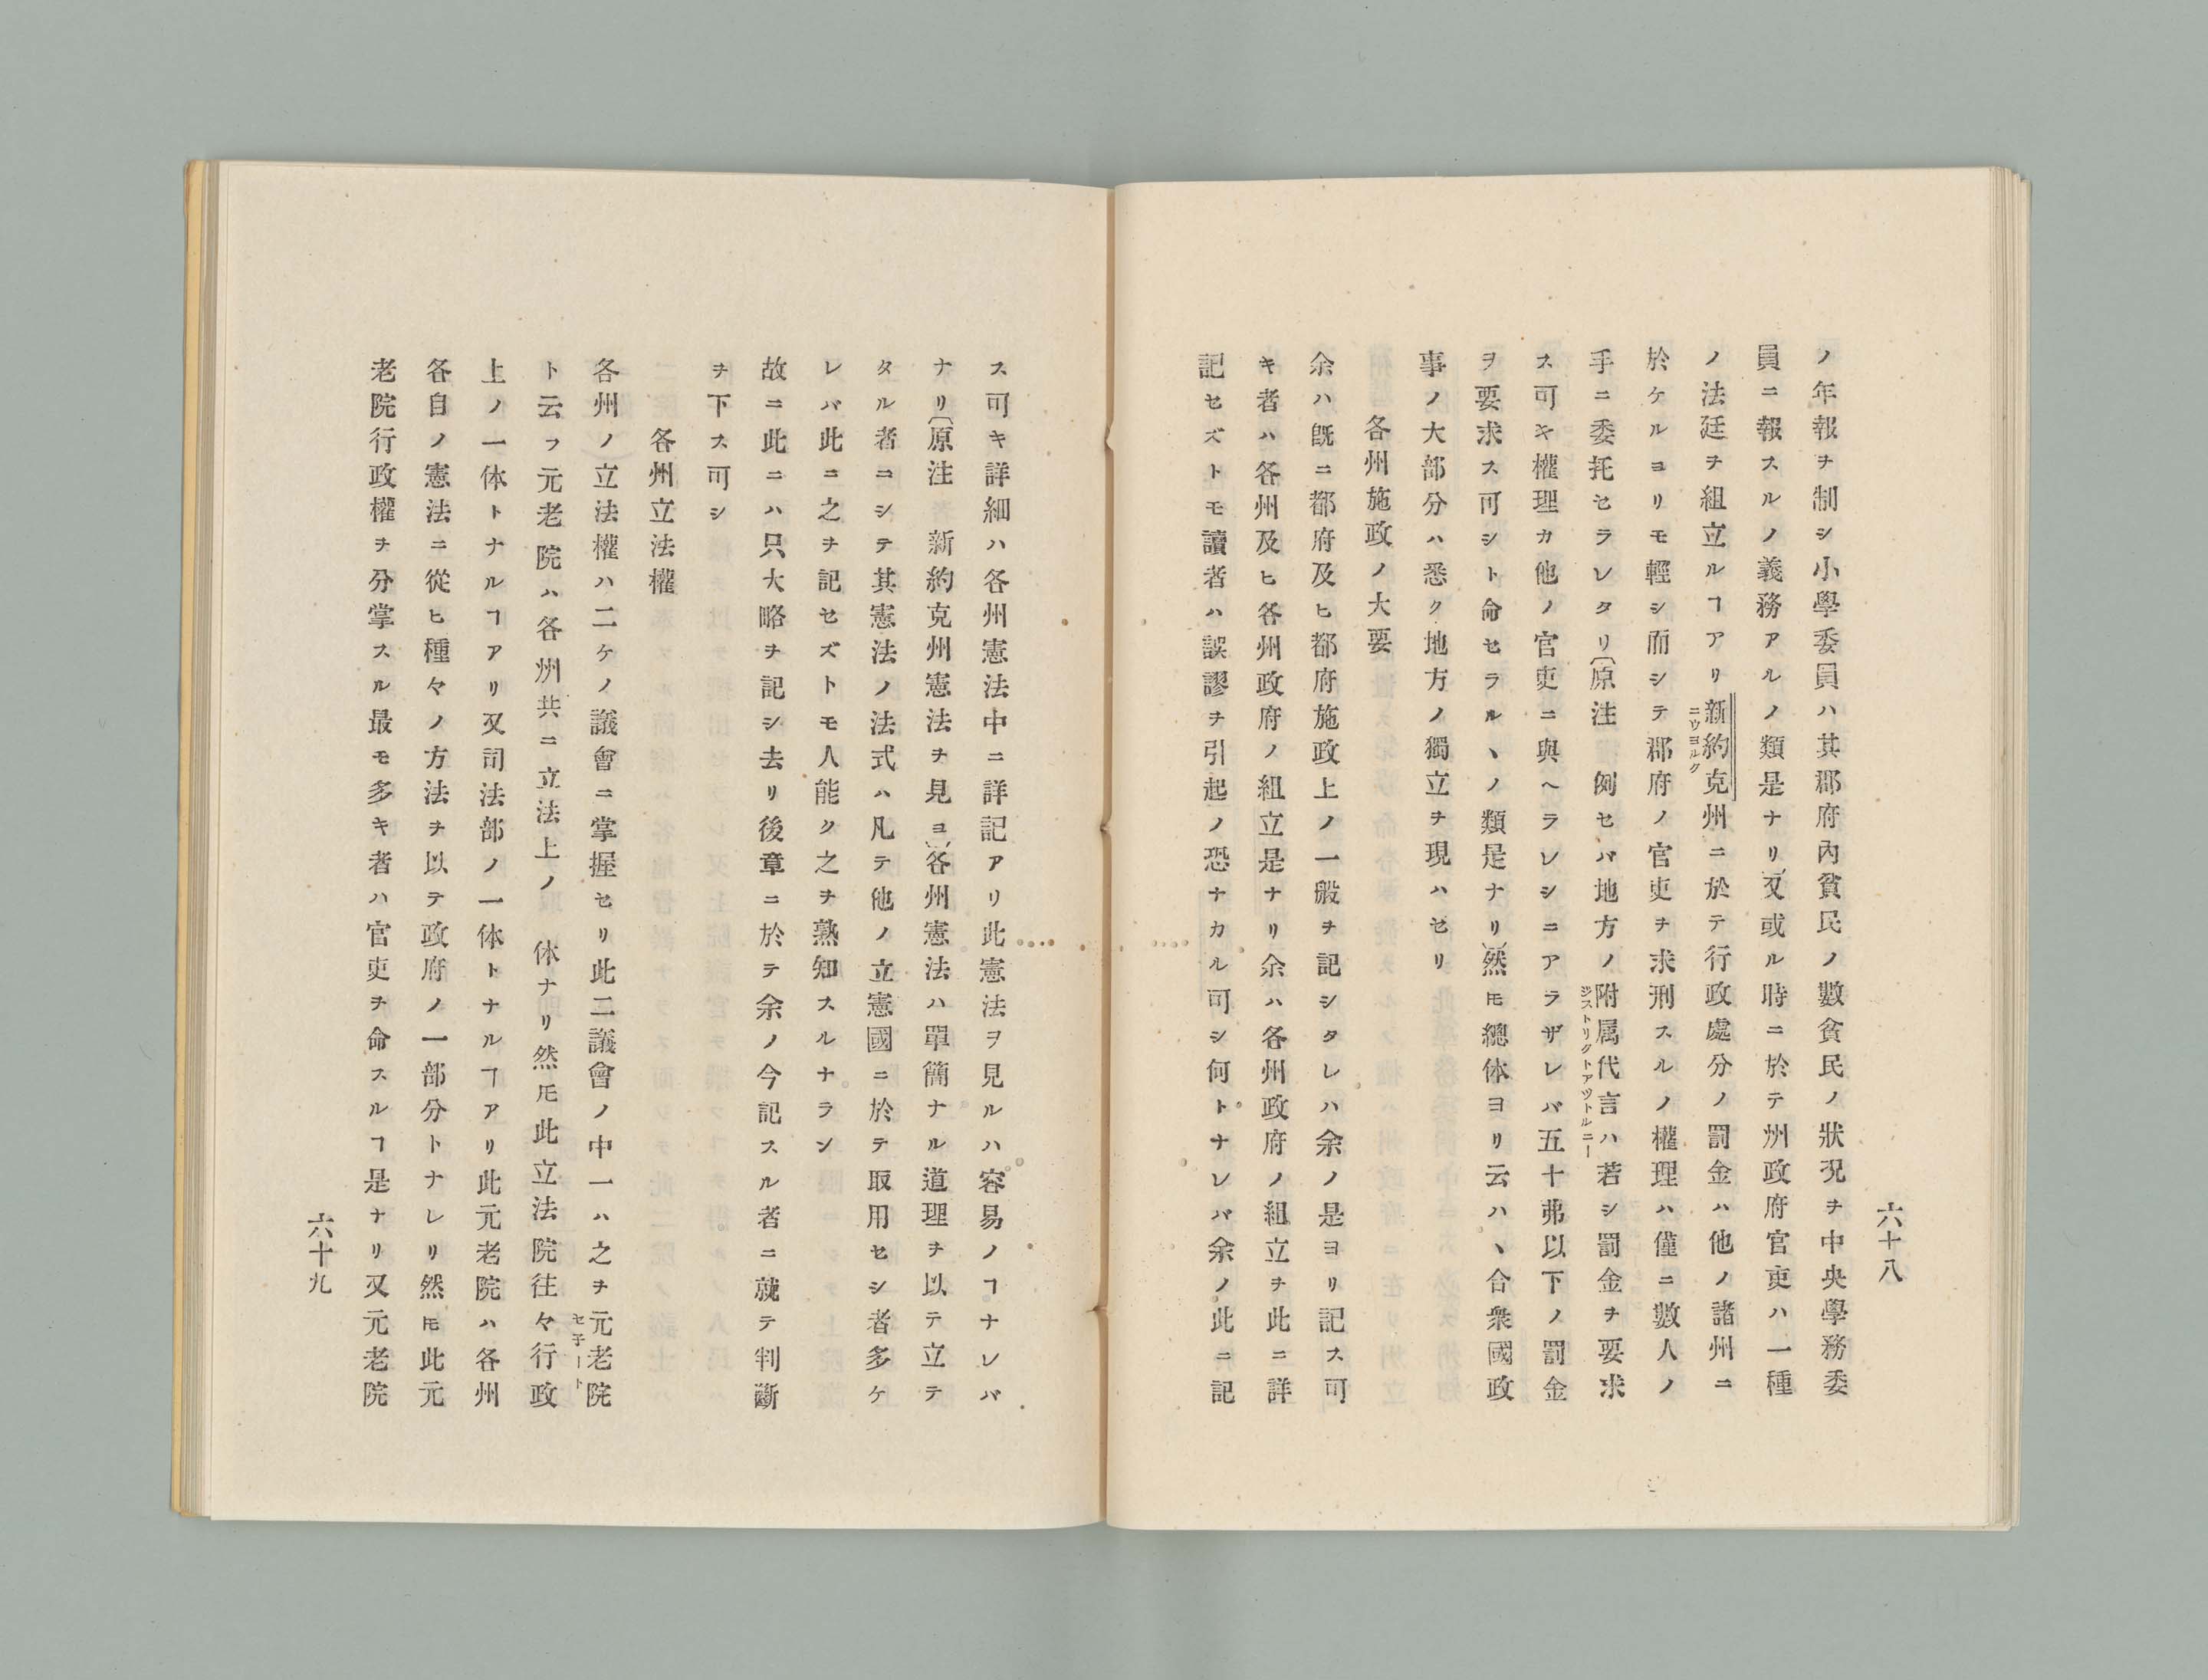 六十八
ノ年報ヲ制シ小學委員ハ其郡府內貧民ノ數貧民ノ狀況ヲ中央學務委
員ニ報スルノ義務アルノ類是ナリ)又或ル時ニ於テ州政府官吏ハ一種
ノ法廷ヲ組立ルヿアリ新約克州ニ於テ行政處分ノ罰金ハ他ノ諸州ニ
ニウヨルク
於ケルヨリモ輕シ而シテ郡府ノ官吏ヲ求刑スルノ權理ハ僅ニ數人ノ
手ニ委托セラレタリ(原注 例セバ地方ノ附属代言ハ若シ罰金ヲ要求
ヂストリクトアツトルニー
ス可キ權理カ他ノ官吏ニ與ヘラレシニアラザレバ五十弗以下ノ罰金
ヲ要求ス可シト命セラルヽノ類是ナリ)然ㇳモ總体ヨリ云ハヽ合衆國政
事ノ大部分ハ悉ク地方ノ獨立ヲ現ハセリ
各州施政ノ大要
余ハ既ニ都府及ヒ都府施政上ノ一般ヲ記シタレハ余ノ是ヨリ記ス可
キ者ハ各州及ヒ各州政府ノ組立是ナリ余ハ各州政府ノ組立ヲ此ニ詳
記セズトモ讀者ハ誤謬ヲ引起ノ恐ナカル可シ何トナレバ余ノ此ニ記
ス可キ詳細ハ各州憲法中ニ詳記アリ此憲法ヲ見ルハ容易ノヿナレバ
ナリ(原注 新約克州憲法ヲ見ヨ)各州憲法ハ單簡ナル道理ヲ以テ立テ
タル者ニシテ其憲法ノ法式ハ凡テ他ノ立憲國ニ於テ取用セシ者多ケ
レバ此ニ之ヲ記セズトモ人能ク之ヲ熟知スルナラン
故ニ此ニハ只大略ヲ記シ去リ後章ニ於テ余ノ今記スル者ニ就テ判斷
ヲ下ス可シ
各州立法權
各州ノ立法權ハ二ケノ議會ニ掌握セリ此二議會ノ中一ハ之ヲ元老院
セ子ート
ト云フ元老院ハ各州共ニ立法上ノ 体ナリ然ㇳモ此立法院往々行政
上ノ一体トナルヿアリ又司法部ノ一体トナルヿアリ此元老院ハ各州
各自ノ憲法ニ從ヒ種々ノ方法ヲ以テ政府ノ一部分トナレリ然ㇳモ此元
老院行政權ヲ分掌スル最モ多キ者ハ官吏ヲ命スルヿ是ナリ又元老院
六十九